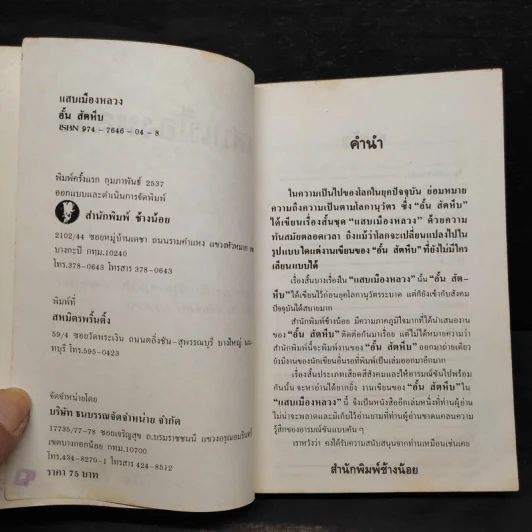 แสบเมืองหลวง
อั๋น สัตหีบ
ISBN 974 - 7646 - 04 - 8
พิมพ์ครั้งแรก กุมภาพันธ์ 2537
ออกแบบและดำเนินการจัดพิมพ์
สำนักพิมพ์ ช้างน้อย
2102/44 ซอยหมู่บ้านเดชา ถนนรามคำแหง แขวงหัวหมาก
บางกะปิ กทม.10240
โทร.378-0643 โทรสาร 378-0643
พิมพ์ที่
สหมิตรพริ้นติ้ง
59/4 ซอยวัดพระเงิน ถนนตลิ่งชัน-สุพรรณบุรี บางใหญ่
ทบุรี โทร.595-0423
จัดจำหน่ายโดย
บริษัท ธนบรรณจัดจำหน่าย จำกัด
17735/77-78 ซอยเจริญสุข ถ.บรมราชชนนี แขวงอรุณอมรินทร์
เขตบางกอกน้อย กทม.10700
โทร.434-8270-1 โทรสาร 424-8512
ราคา 75 บาท
คำนำ
ในความเป็นไปของโลกในยุคปัจจุบัน ย่อมหมาย
ความถึงความเป็นตามโลกานุวัตร ซึ่ง "อั๋น สัตหีบ"
ได้เขียนเรื่องสั้นชุด "แสบเมืองหลวง" ด้วยความ
ทันสมัยตลอดเวลา ถึงแม้ว่าโลกจะเปลี่ยนแปลงไปใน
รูปแบบใดแต่งานเขียนของ "อั๋น สัตหีบ" ที่ยังไม่มีใคร
เลียนแบบได้
เรื่องสั้นบางเรื่องใน "แสบเมืองหลวง" นั้น "อั๋น สัต-
หีบ" ได้เขียนไว้ก่อนยุคโลกานุวัตรระบาด แต่ก็ยังเข้ากับสังคม
ปัจจุบันได้สบายมาก
สำนักพิมพ์ช้างน้อย มีความภาคภูมิใจมากที่ได้นำเสนองาน
ของ "อั๋น สัตหีบ" ติดต่อกันมาเรื่อย แต่ไม่ได้หมายความว่า
สำนักพิมพ์นี้จะพิมพ์งานของ "อั๋น สัตหีบ" ออกมาถ่ายเดียว
ยังมีงานของนักเขียนอื่นรอที่พิมพ์เป็นเล่มออกมาอีกมาก
เรื่องสั้นประเภทเสียดสีสังคมและให้อารมณ์ขันไปพร้อม
กันนั้น จะหาอ่านได้ยากยิ่ง งานเขียนของ "อั๋น สัตหีบ" ใน
"แสบเมืองหลวง" นี้ จึงเป็นหนังสืออีกเล่มหนึ่งที่ท่านผู้อ่าน
ไม่น่าจะพลาดและมีเก็บไว้อ่านยามที่ท่านผู้อ่านขาดแคลนความ
รู้สึกของอารมณ์ขันแบบคัน ๆ
เราหวังว่า คงได้รับความสนับสนุนจากท่านเหมือนเช่นเคย
สำนักพิมพ์ช้างน้อย